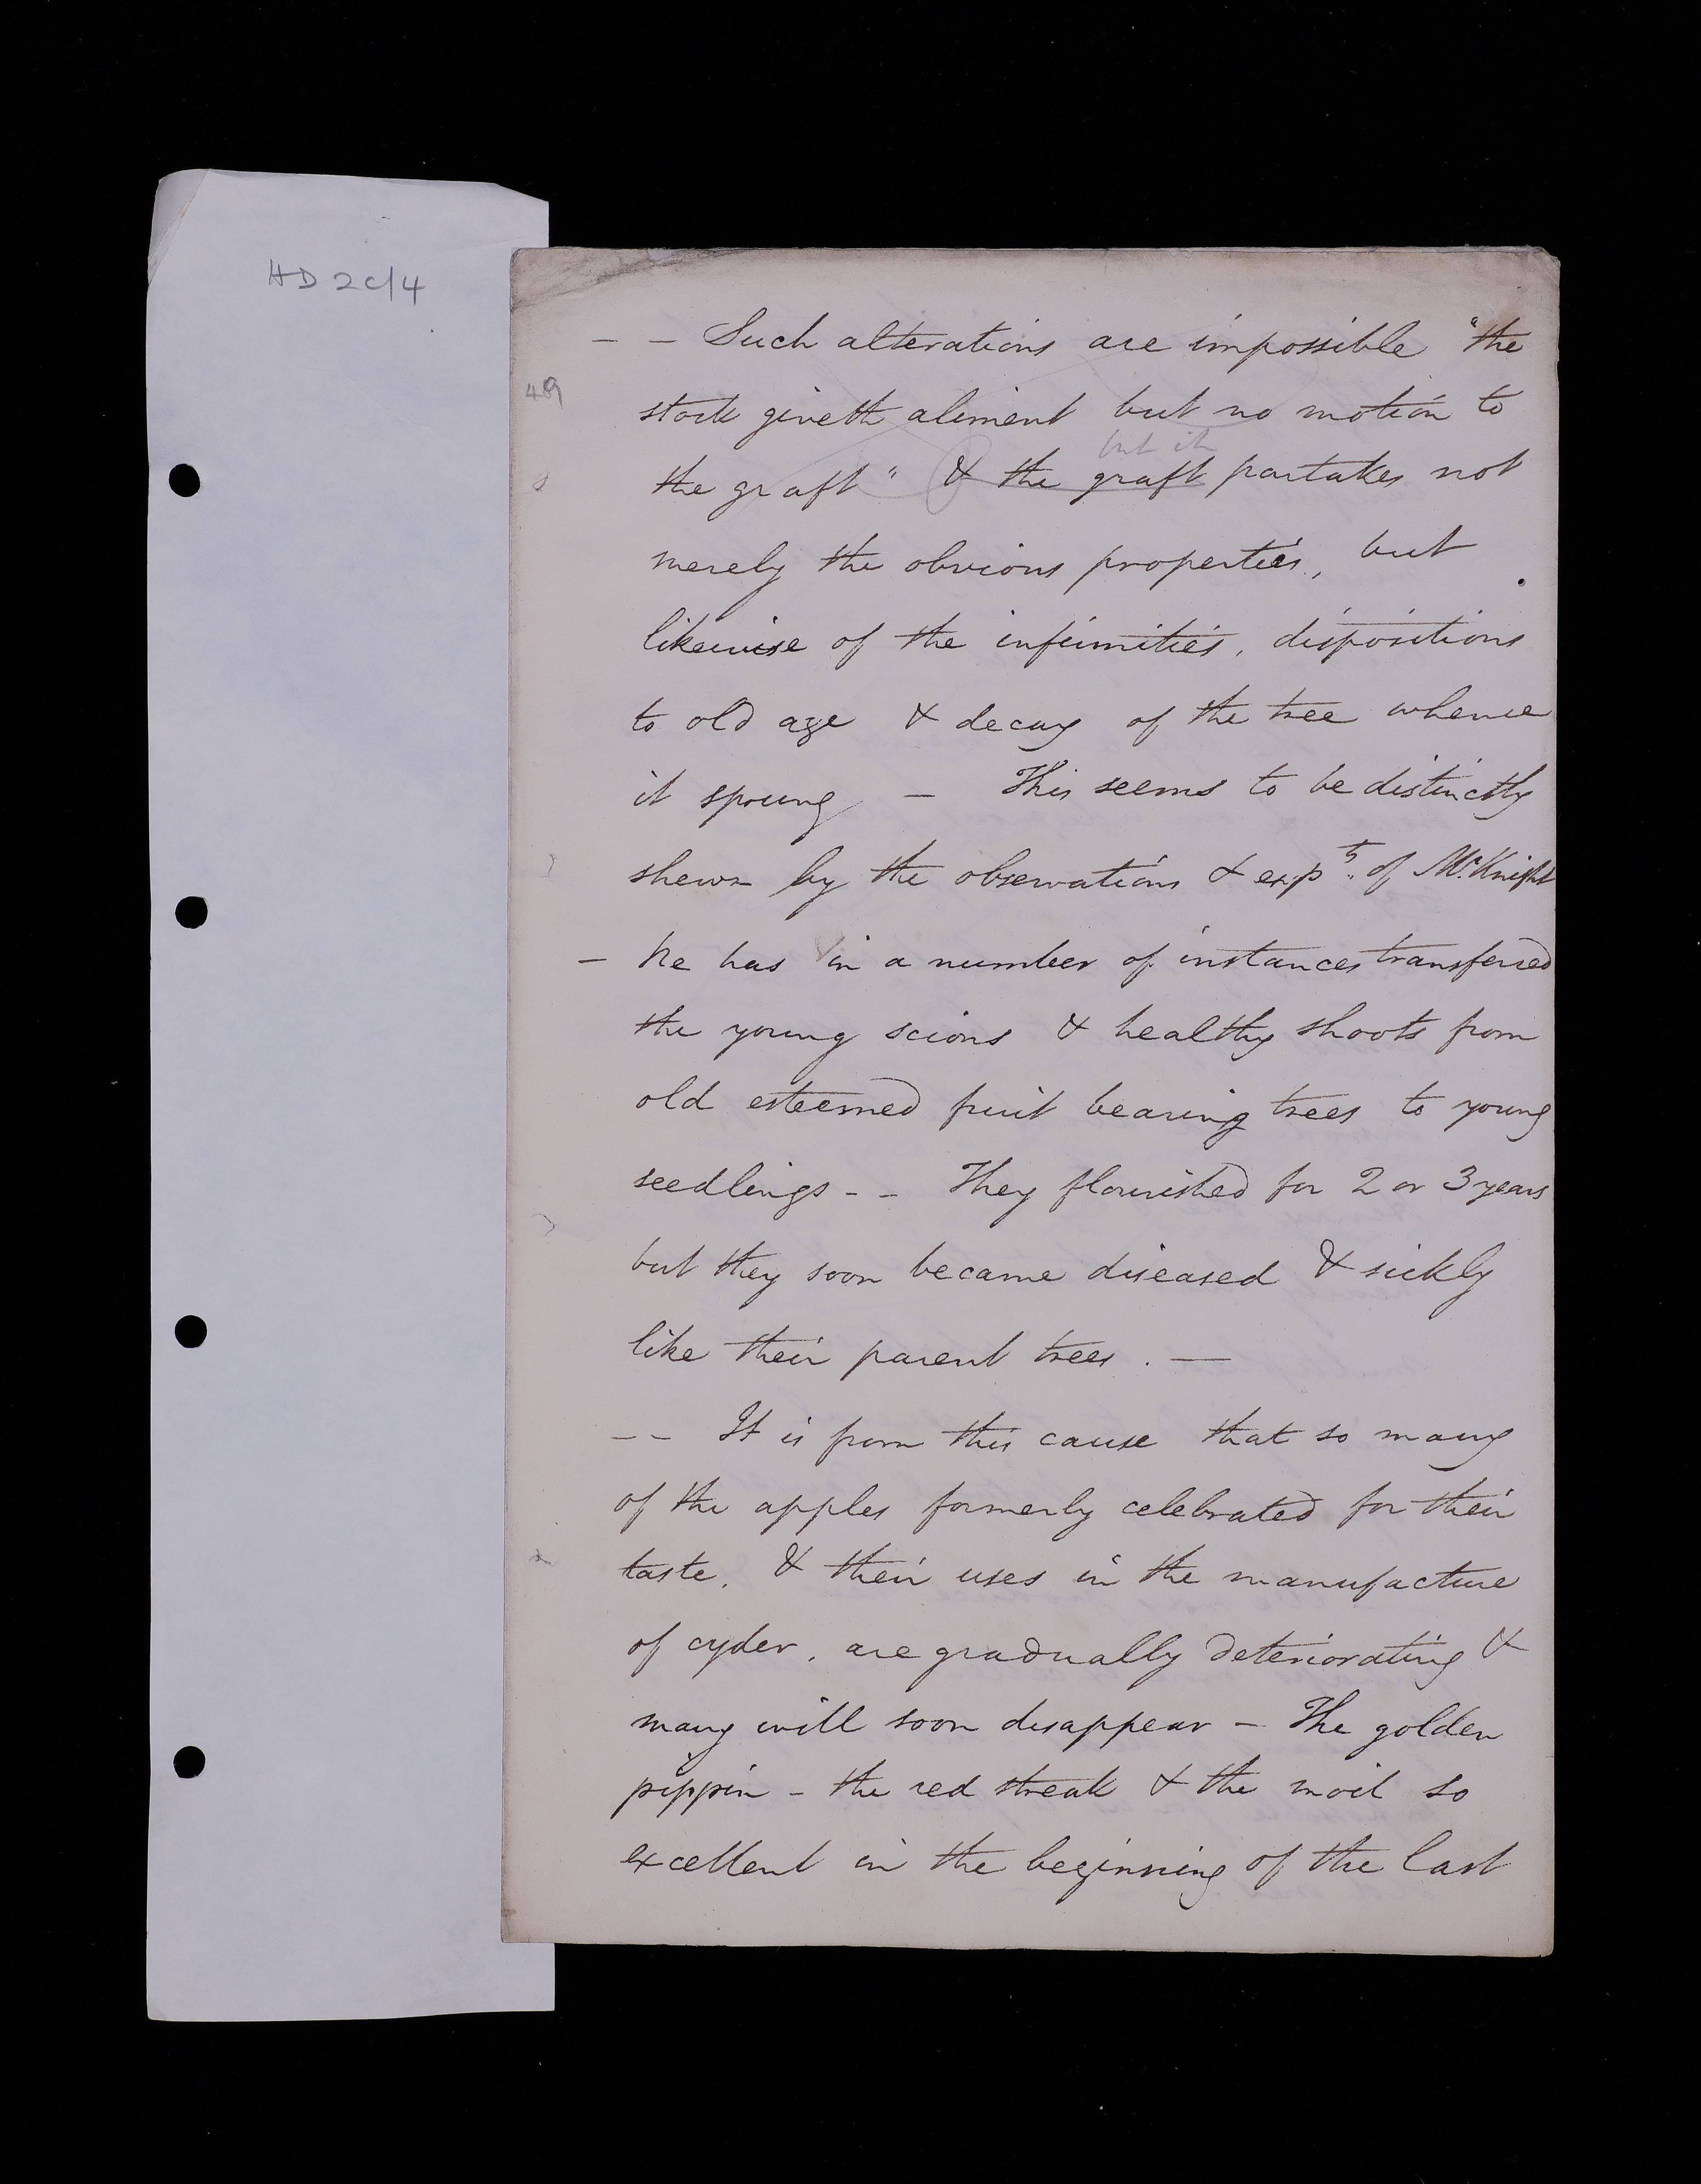 HD 2c/4
- - Such alterations are impossible "the
49
stock giveth aliment but no motion to
but it
the graft" & the graft partakes not
merely the obvious properties, but
likewise of the infirmities, dispositions
to old age & decay of the tree whence
it sprung - This seems to be distinctly
shewn by the observations & expts. of Mr. Knight
- he has in a number of instances transferred
the young scions & healthy shoots from
old esteemed fruit bearing trees to young
seedlings - - They flourished for 2 or 3 years
but they soon became diseased & sickly
like their parent trees. -
- - It is from this cause that so many
of the apples formerly celebrated for their
taste, & their uses in the manufacture
of cyder, are gradually deteriorating &
many will soon disappear - The golden
pippin - the red streak & the moil so
excellent in the beginning of the last